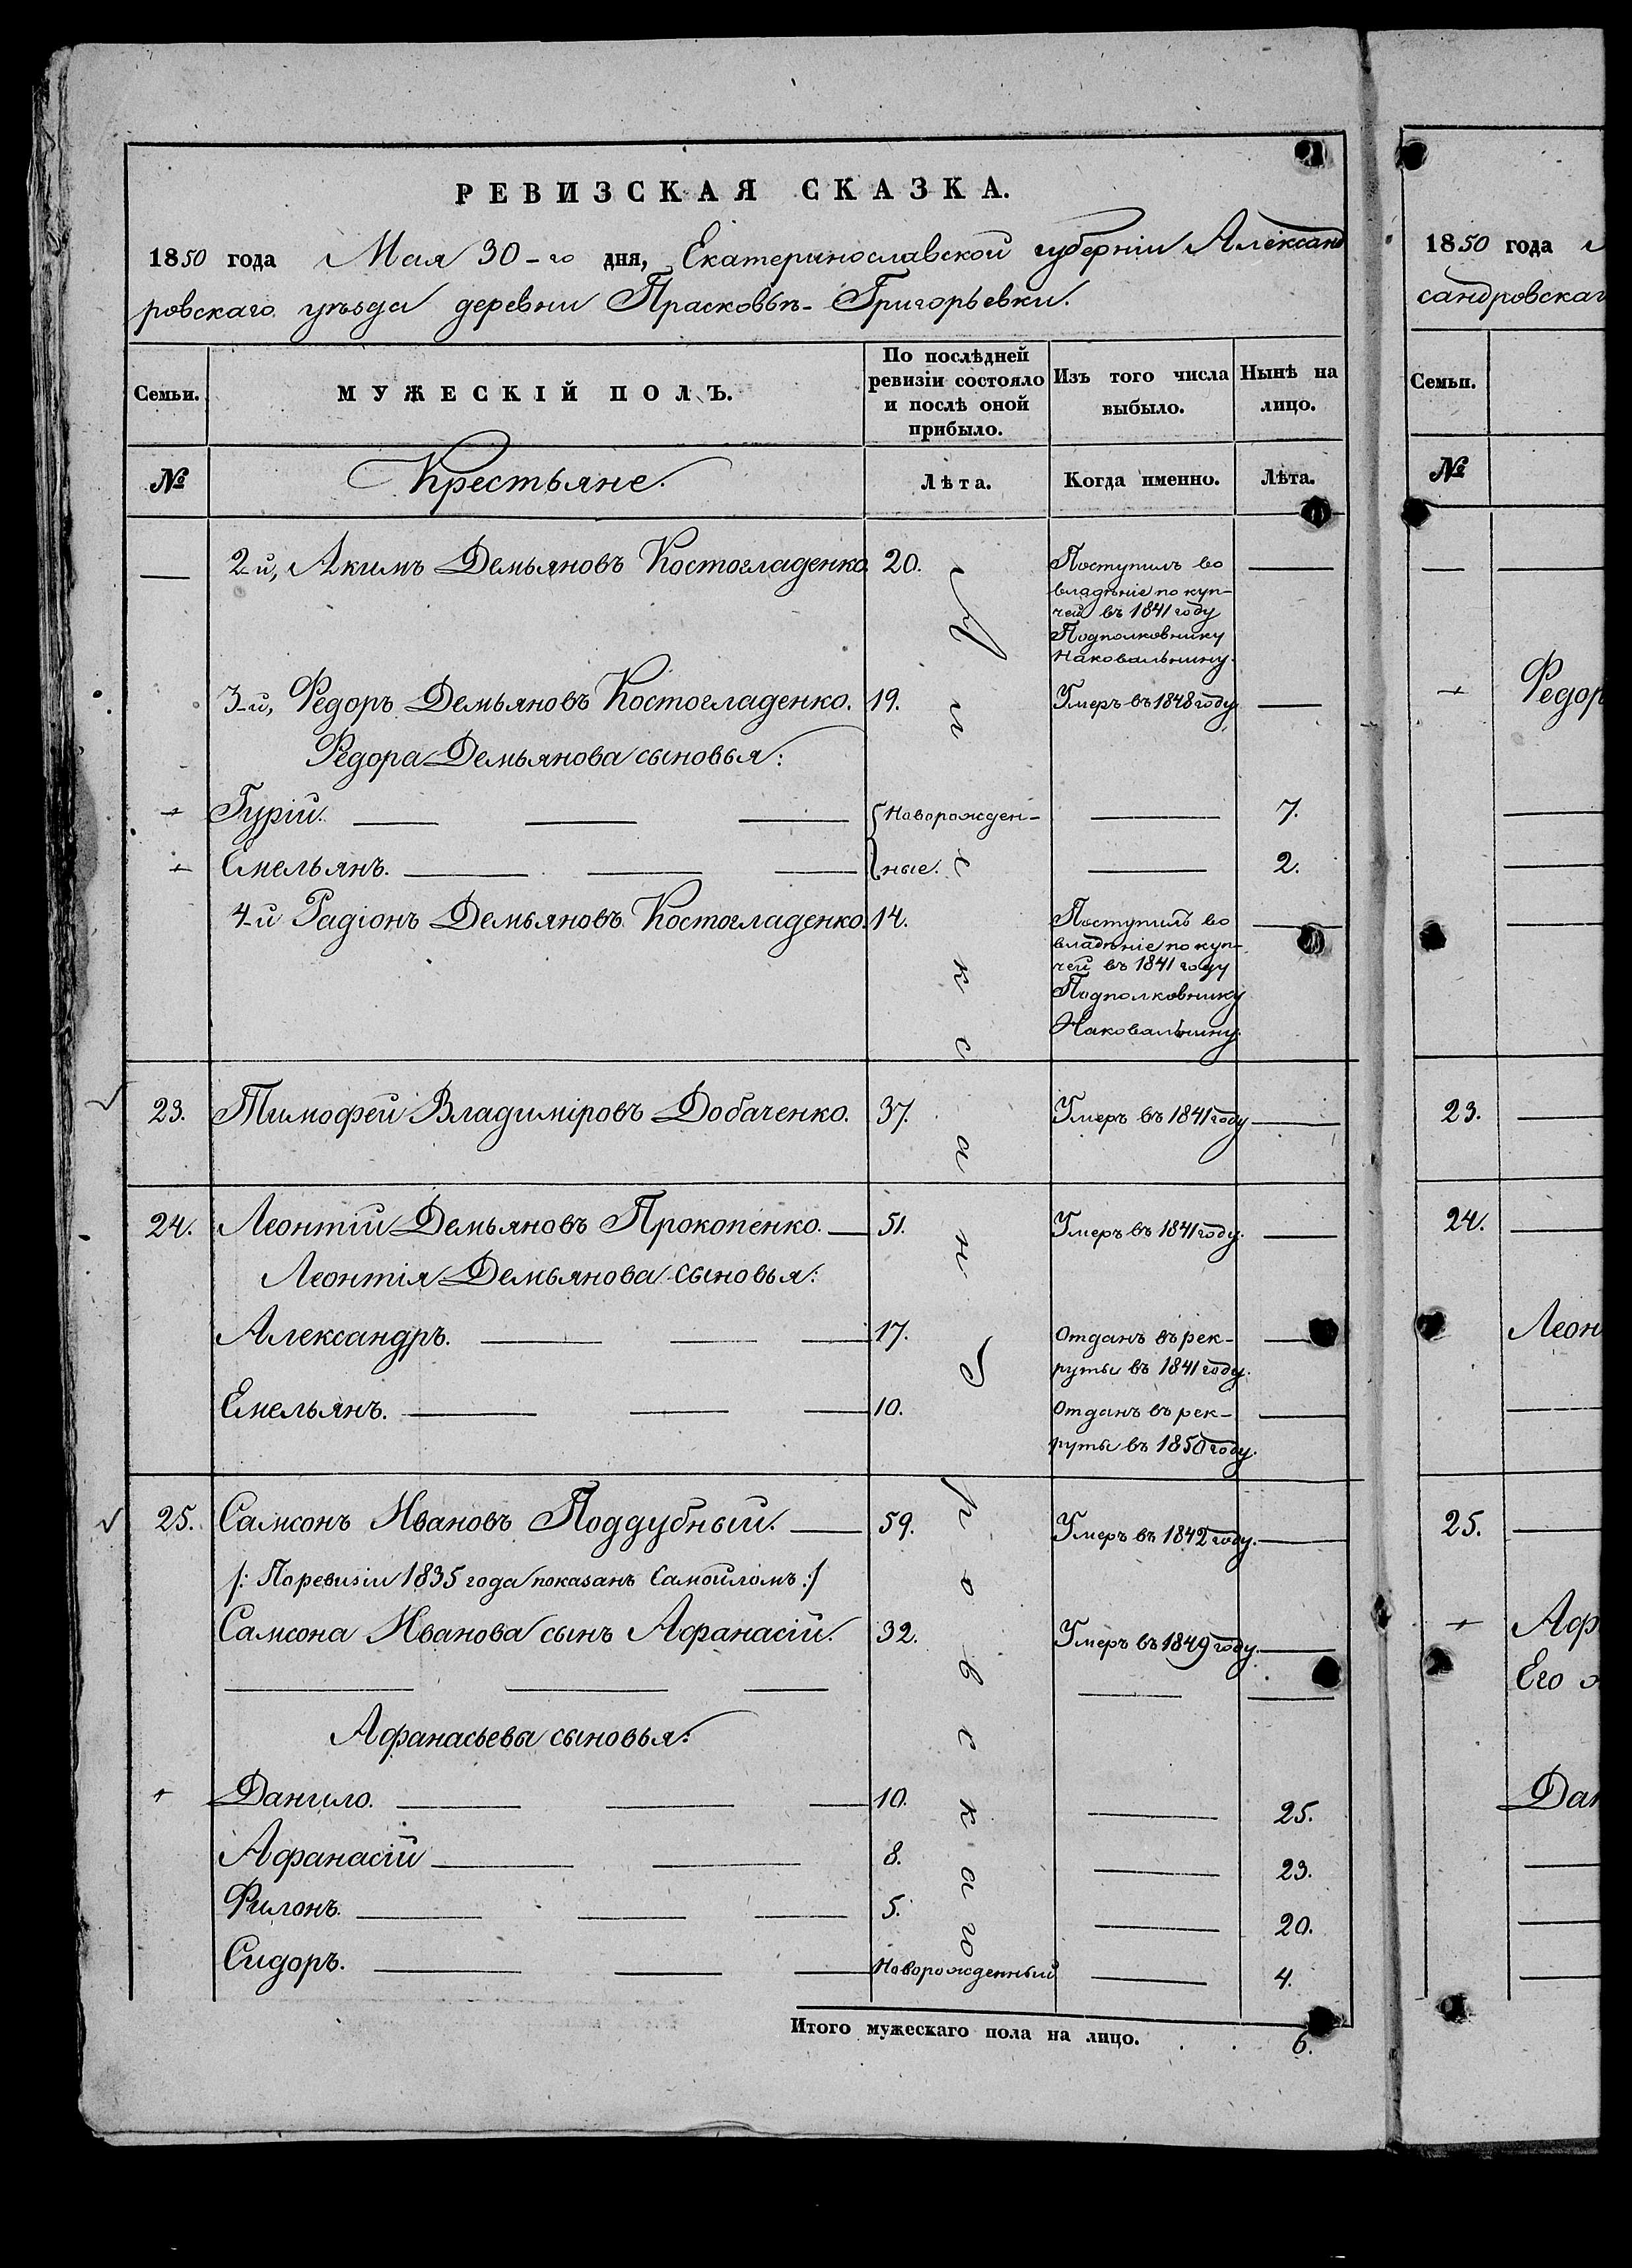 РЕВИЗСКАЯ СКАЗКА.
1850 года Мая 30-го дня, Екатеринославской губерніи Александ
ровскаго уѣзда деревни Прасковѣе-Григорьевки.
Семьи.
МУЖЕСКІЙ ПОЛЪ.
По послѣдней
ревизіи состояло
и послѣ оной
прибыло.
Изъ того числа
выбыло.
Нынѣ на
лицо.
№
Крестьяне.
Лѣта.
Когда именно.
Лѣта.
— 2-й, Акимъ Демьяновъ Костогладенко. 20. Поступилъ во —
владѣніе по куп-
чей въ 1841 году
Подполковнику
Наковальнину.
3-й, Федоръ Демьяновъ Костогладенко. 19. Умеръ въ 1848 году —
Федора Демьянова сыновья:
+ Гурій. — — — {Новорожден- — 7.
+ Емельянъ. — — — ные. — 2.
4-й Радіонъ Демьяновъ Костогладенко. 14. Поступилъ во —
владѣніе по куп-
чей въ 1841 году
Подполковнику
Наковальнину.
23. Тимофей Владиміровъ Добаченко. 37. Умеръ въ 1841 году —
24. Леонтій Демьяновъ Прокопенко. — 51. Умеръ въ 1841 году. —
Леонтія Демьянова сыновья:
Александръ. — — — 17. Отданъ въ рек- —
руты въ 1841 году.
Емельянъ. — — — 10. Отданъ въ рек- —
руты въ 1850 году.
25. Самсонъ Ивановъ Поддубный. — 59. Умеръ въ 1842 году. —
/: По ревизіи 1835 года показанъ Самойломъ :/
Самсона Иванова сынъ Афанасій. 32. Умеръ въ 1849 году. —
— — — — —
Афанасьева сыновья:
+ Данило. — — — 10. — 25.
Афанасій — — 8. — 23.
Филонъ. — — — 5. — 20.
Сидоръ. — — — Новорожденный — 4.
Итого мужескаго пола на лицо. . . 6.
1850 года
сандровскаг
Семьи.
№
—
+ Федор
23. —
24. —
Леон
25. —
+ Аф
Его
Дан